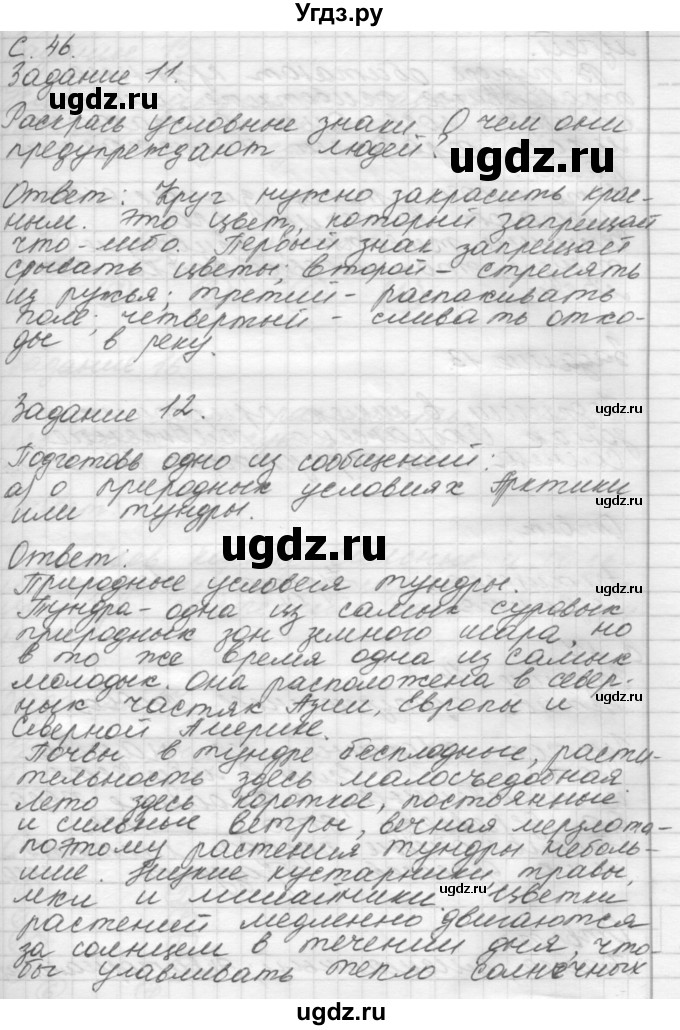 Угдз.ру
С. 46.
Задание 11.
ugdz.ru
Раскрась условные знаки. О чем они
предупреждают людей?
ugdz.ru
Ответ: Круг нужно закрасить крас-
ным. Это цвет, который запрещает
что-либо. Первый знак запрещает
срывать цветы; второй – стрелять
из ружья; третий – распахивать
поле; четвертый – сливать отхо-
ды в реку.
Задание 12.
ugdz.ru
Подготовь одно из сообщений:
а) о природных условиях Арктики
ugdz.ru
или тундры.
Ответ:
ugdz.ru
Природные условия тундры.
ugdz.ru
Тундра – одна из самых суровых
природных зон земного шара, но
в то же время одна из самых
молодых. Она расположена в север-
ugdz.ru
ных частях Азии, Европы и
Северной Америке.
Почвы в тундре бесплодные, расти-
тельность здесь малосъедобная.
ugdz.ru
Лето здесь короткое, постоянные
и сильные ветры, вечная мерзлота –
поэтому растения тундры неболь-
шие. Низкие кустарники, травы,
мхи и лишайники. Цветки
ugdz.ru
растений медленно двигаются
за солнцем в течении дня, что-
бы улавливать тепло солнечных
ugdz.ru
ugdz.ru